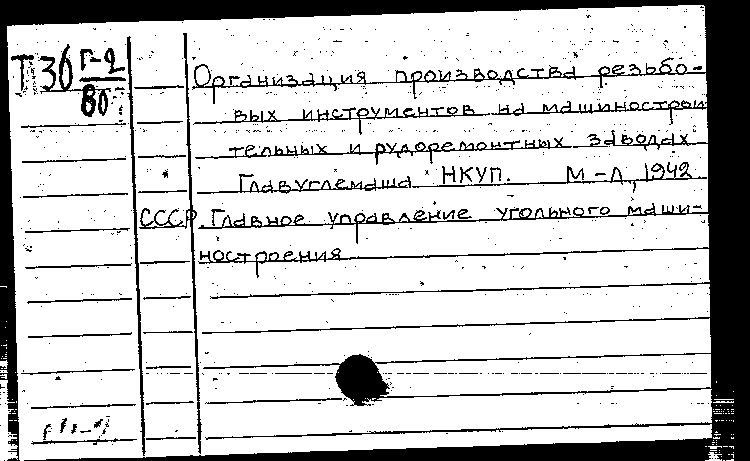 П 36 Г-2
80
Организация производства резьбо-
вых инструментов на машинострои
тельных и рудоремонтных заводах
Главуглемаша НКУП. М-Л, 1942
СССР. Главное управление угольного маши-
ностроения